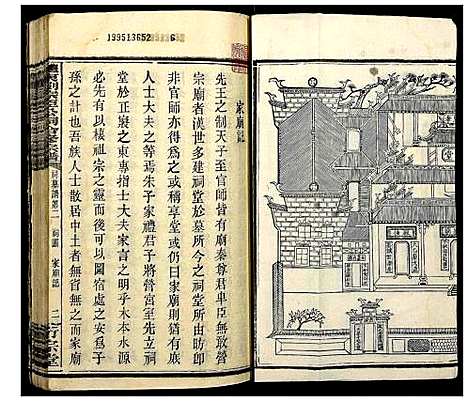 199513652
6
家廟記
先王之制天子至官師皆有廟秦尊君卑臣無敢營
宗廟者漢世多建祠堂於墓所今之祠堂所由昉卽
非官師亦得為之或稱享堂或仍曰家廟則猶有底
人士大夫之等焉朱子家禮君子將營宮室先立祠
堂於正寢之東專指士大夫家言之明乎木本水源
必先有以棲祖宗之靈而後可以圖宿處之安爲子
孫之計也吾族人士散居中土者無省無之而家廟
祠墓譜卷二
祠圖
家廟記
二